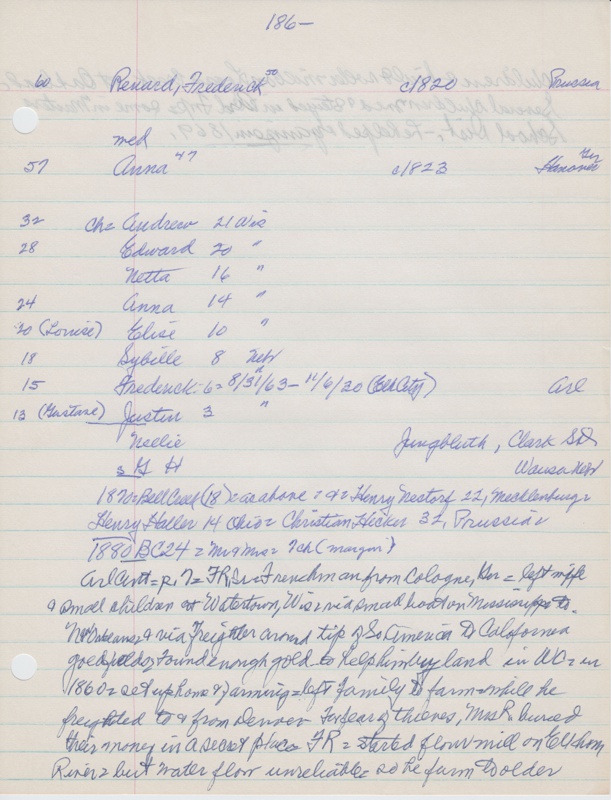 186-
60 Renard, Frederick 50 c/1820 Prussia
med
57 Anna 47 c/1823 Hanover Ger
32 ch= Andrew 21 Wis
28 Edward 20 "
Netta 16 "
24 Anna 14 "
20 (Louise) Elise 10 "
18 Sybille 8 Nebr
15 Frederick 6 = 8/31/63 - 11/6/20 (Elk City) Arl
13 (Gustave) Justin 3 "
Nellie Jungbluth, Clark SD
3 G H Wausa Nebr
1870 = Bell Creek (18) = as above = & = Henry Nestorf 22, Mecklenburg =
Henry Haller 14 Ohio = Christian Hecker 32, Prussia =
1880 BC24 = Mr & Mrs = 7 ch (margin)
Arl Cent = p.17 = FR, Sr = Frenchman from Cologne, Ger = left wife
& small children at Watertown, Wis = via small boat on Mississippi to
N Orleans & via freighter around tip of So America to California
goldfields = found enough gold to help him buy land in WC = in
1860 = set up home & farming = left family to farm while he
freighted to & from Denver For fear of thieves, Mrs R buried
their money in a secret place FR = started flour mill on Elkhorn
River = but water flow unreliable = so he farm to older